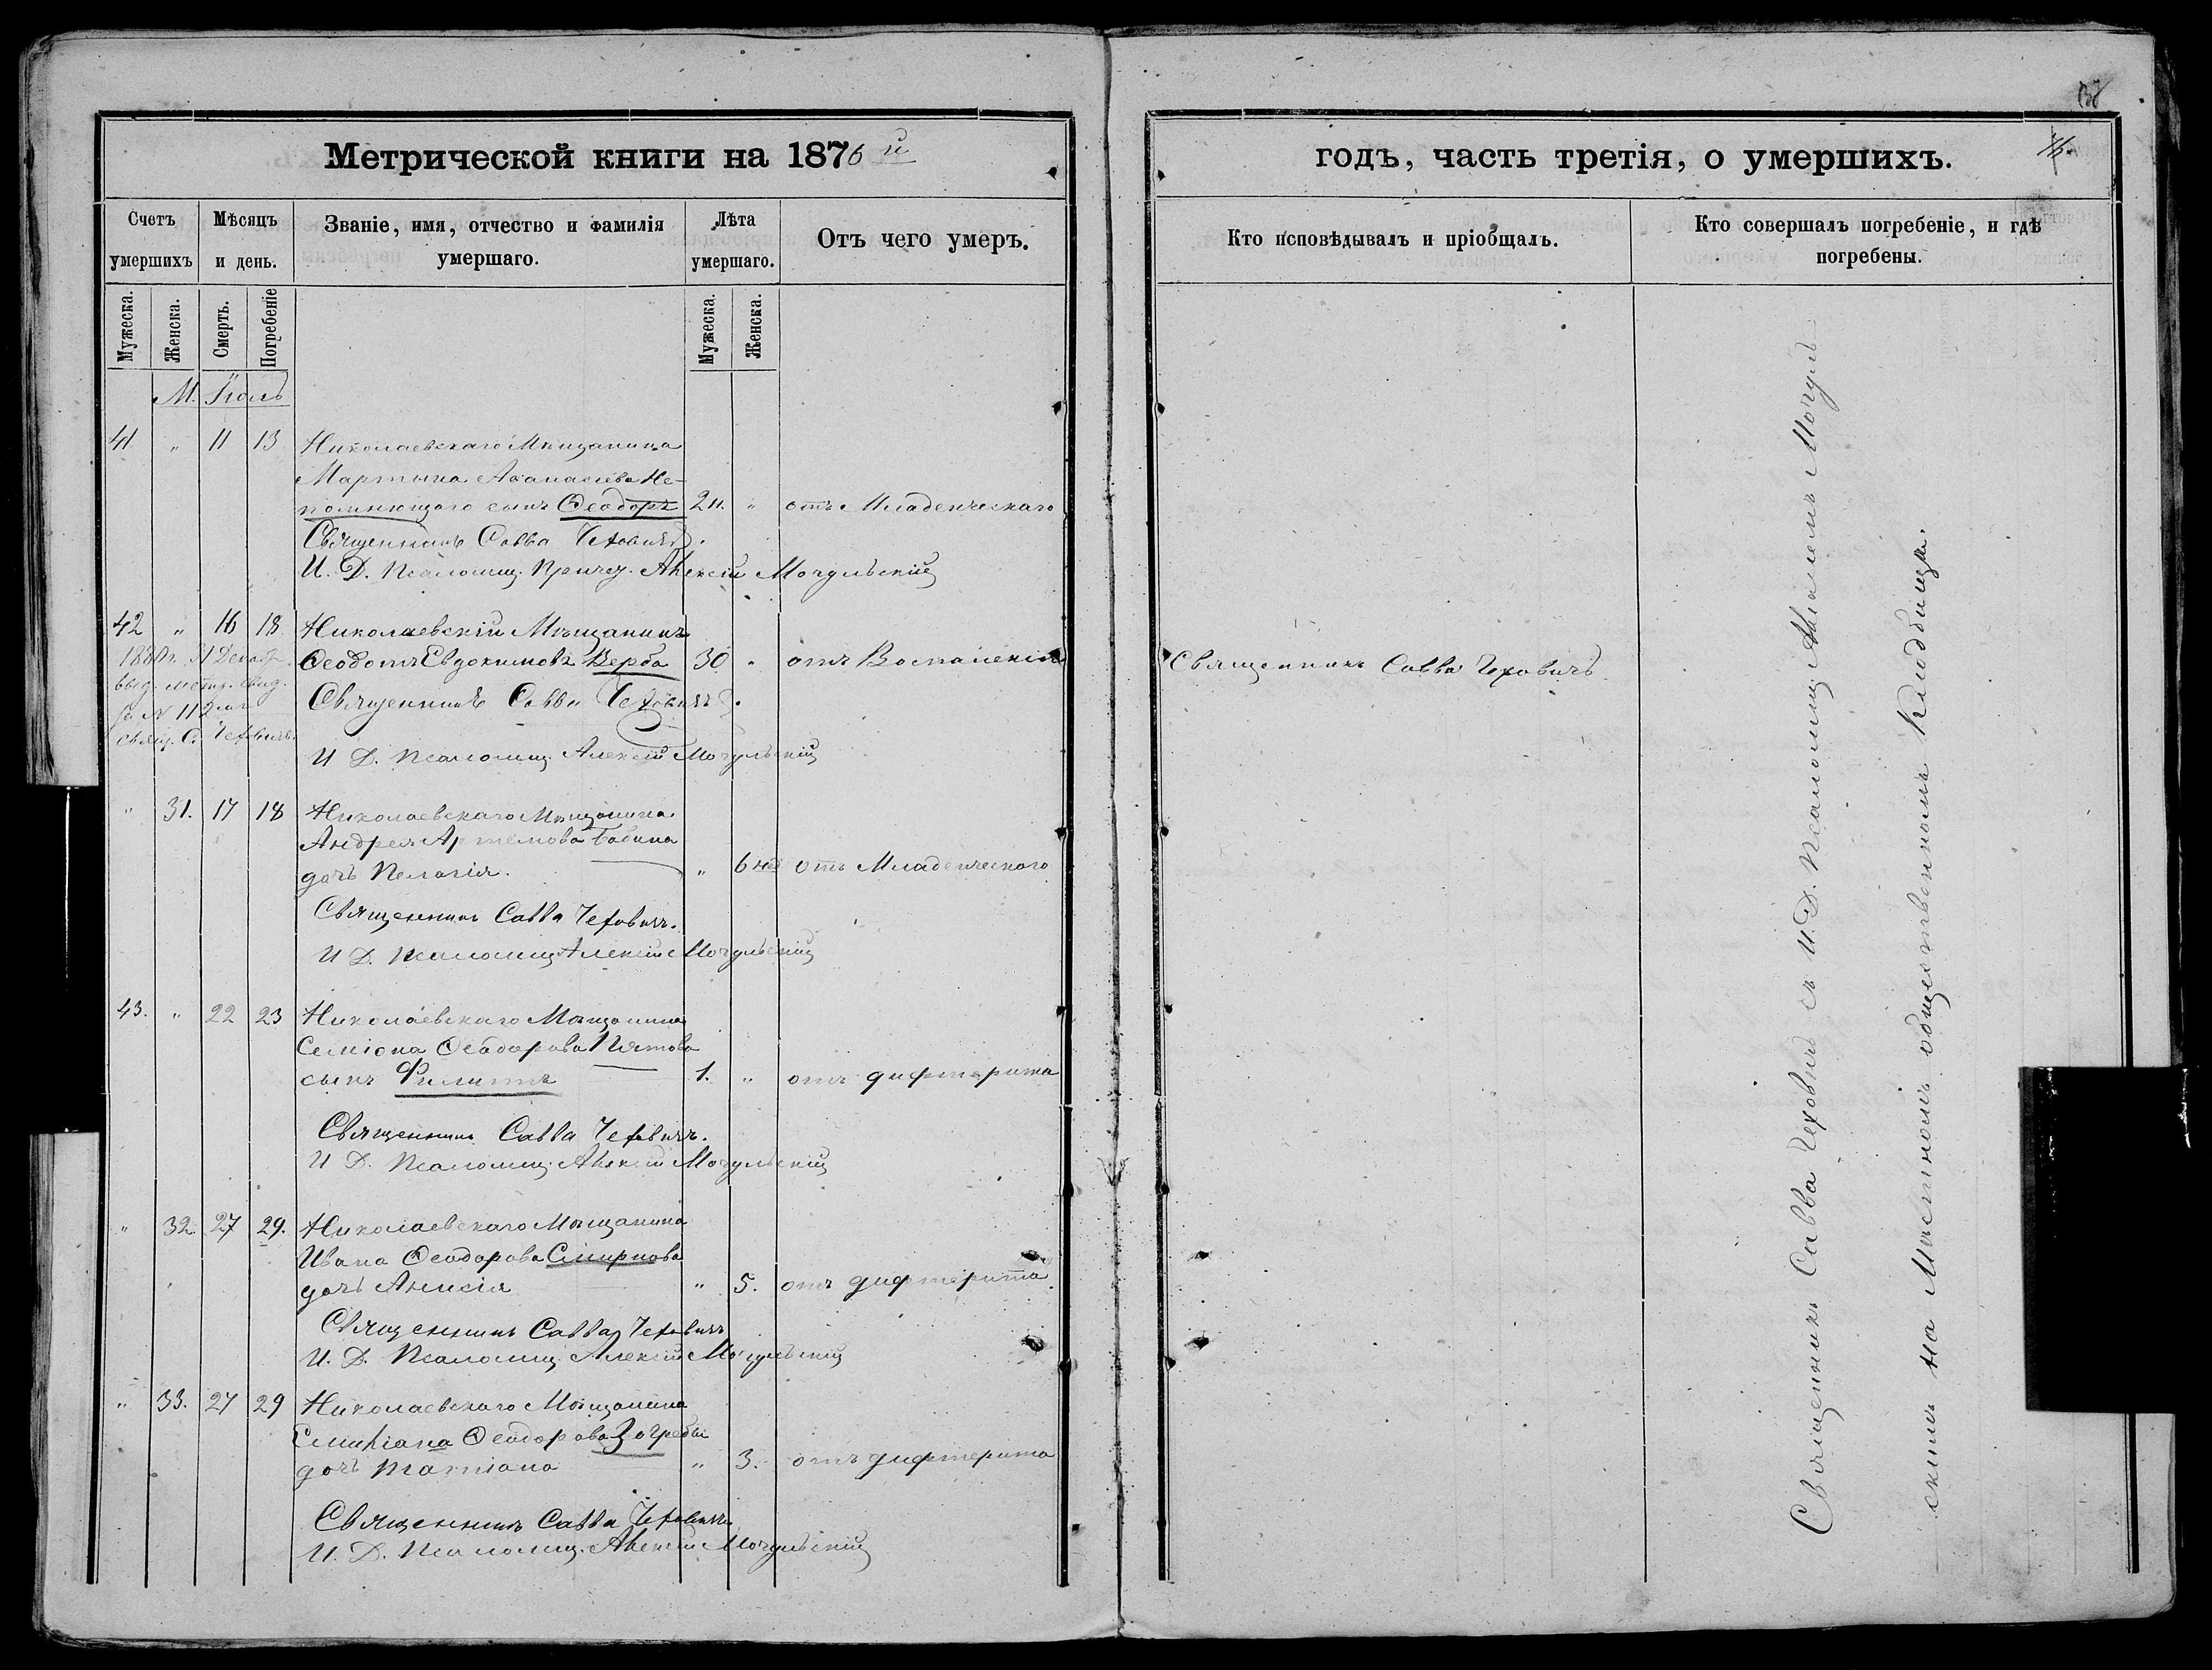 Метрической книги на 1876 й
Счетъ умершихъ
Мѣсяцъ и день.
Званіе, имя, отчество и фамилія умершаго.
Лѣта умершаго.
Отъ чего умеръ.
Мужеска.
Женска.
Смерть.
Погребеніе
Мужеска.
Женска.
М. Іюль
41 " 11 13 Николаевскаго Мѣщанина
Мартына Аѳанасіева Не-
помнющаго сынъ Ѳеодоръ 2 н. " отъ Младенческаго
Священникъ Савва Чеховичъ.
И. Д. Псаломщ. Причет. Алексій Мочульскій
42 " 16 18 Николаевскій Мѣщанинъ
Ѳеодотъ Евдокимовъ Верба 30 " отъ Воспаленія
31 Декабр.
выд. метр. свид.
за N 112
свящ. С. Чеховичъ.
Священникъ Савва Чеховичъ.
И Д. Псаломщ. Алексій Мочульскій
" 31. 17 18 Николаевскаго Мѣщанина
Андрея Артемова Бабина
дочь Пелагія. " 6 нед отъ Младенческаго
Священникъ Савва Чеховичъ.
И Д. Псаломщ Алексій Мочульскій
43. " 22 23 Николаевскаго Мѣщанина
Семіона Ѳеодорова Пятова
сынъ Филиппъ 1. " отъ дифтерита
Священникъ Савва Чеховичъ.
И Д. Псаломщ. Алексій Мочульскій
" 32. 27 29. Николаевскаго Мѣщанина
Ивана Ѳеодорова Смирнова
дочь Анисія " 5. отъ дифтерита
Священникъ Савва Чеховичъ
И. Д. Псаломщ. Алексій Мочульскій
" 33. 27 29 Николаевскаго Мѣщанина
Емиліана Ѳеодорова Загребы
дочь Татіана " 3. отъ дифтерита
Священникъ Савва Чеховичъ
И. Д. Псаломщ. Алексій Мочульскій
годъ, часть третія, о умершихъ.
Кто исповѣдывалъ и пріобщалъ.
Кто совершалъ погребеніе, и гдѣ погребены.
Священникъ Савва Чеховичъ
Священникъ Савва Чеховичъ съ И. Д. Псаломщ. Алексіемъ Мочуль
скимъ на Мѣстномъ общественномъ кладбищѣ.